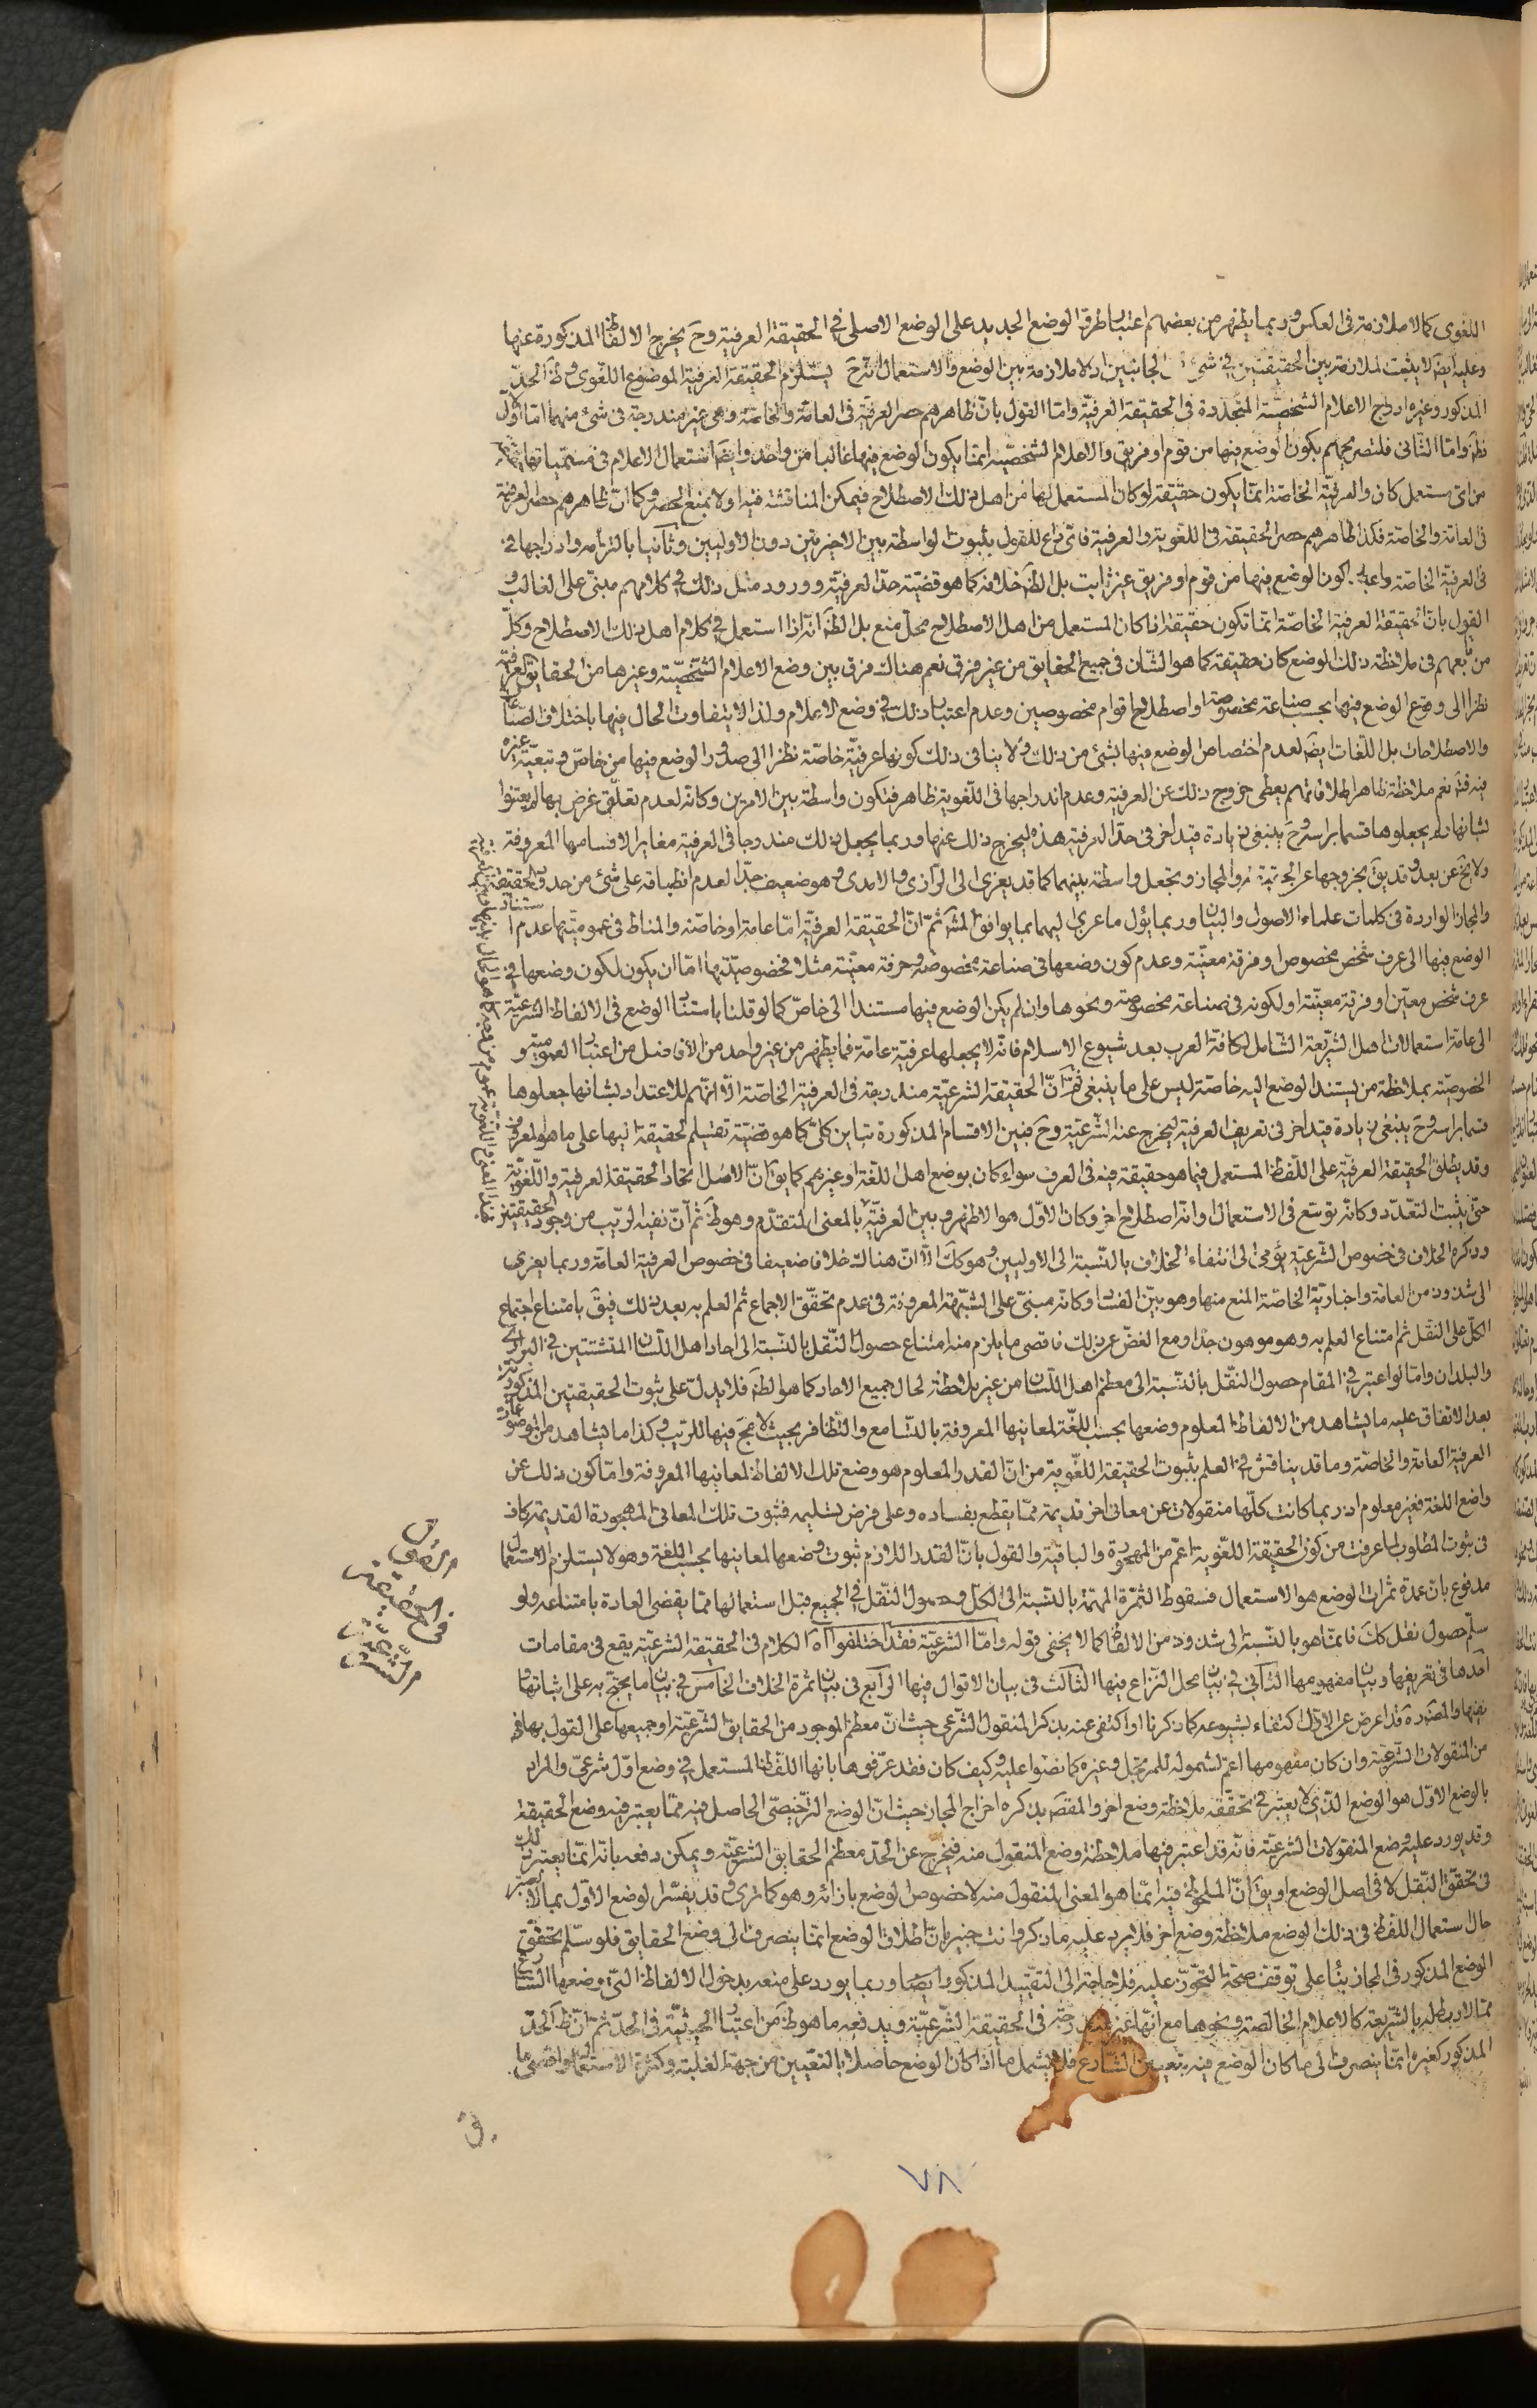 اللغوى كما لا ملازمة فى العكس وربما يظهر من بعضهم اعتبار طرو الوضع الجديد على الوضع الاصلى في الحقيقة العرفية وح يخرج الالفاظ المذكورة عنها
وعليه ايضا لا يثبت الملازمة بين الحقيقتين في شئ الجانبين اذ لا ملازمة بين الوضع والاستعمال يستلزم الحقيقة العرفية الموضوع اللغوى وظ الحد
المذكور وغيره ادراج الاعلام الشخصية المتجددة فى الحقيقة العرفية واما القول بان ظاهرهم حصر العرفية فى العامة والخاصة وهى غير مندرجة فى شئ منهما اما الاول
فظ واما الثانى فلتصريحهم بكون الوضع فيها من قوم او فريق والاعلام الشخصية انما يكون الوضع فيها غالبا من واحد وايضا استعمال الاعلام فى مسمياتها
من اى مستعمل كان والعرفية الخاصة انما يكون حقيقة لو كان المستعمل لها من اهل ذلك الاصطلاح فيمكن المناقشة فيه اولا بمنع الحصر وكما ان ظاهرهم حصر العرفية
فى العامة والخاصة فكذا ظاهرهم حصر الحقيقة فى اللغوية والعرفية فاى داع للقول بثبوت الواسطة بين الاخيرتين دون الاوليين وثانيا بالتزامه وادراجها فى
فى العرفية الخاصة كون الوضع فيها من قوم او فريق غير ثابت بل الظ خلافه كما هو قضية حد العرفية وورود مثل ذلك في كلامهم مبنى على الغالب و
القول بان الحقيقة العرفية الخاصة انما تكون حقيقة اذا كان المستعمل من اهل الاصطلاح محل منع بل الظ انه اذا استعمل في كلام اهل ذلك الاصطلاح وكل
من تابعهم فى ملاحظة ذلك الوضع كان حقيقة كما هو الشان فى جميع الحقايق من غير فرق نعم هناك فرق بين وضع الاعلام الشخصية وغيرها من الحقايق العرفية
نظرا الى وقوع الوضع فيها بحسب صناعة مخصوصة او اصطلاح اقوام مخصوصين وعدم اعتبار ذلك في وضع الاعلام ولذا لا يتفاوت الحال فيها باختلاف الصناعات
والاصطلاحات بل اللغات ايض لعدم اختصاص الوضع فيها بشئ من ذلك ولا ينافى ذلك كونها عرفية خاصة نظرا الى صدور الوضع فيها من خاص وتبعية غيره
فيه فت نعم ملاحظة ظاهر اطلاقاتهم يعطى خروج ذلك عن العرفية وعدم اندراجها فى اللغوية ظاهر فتكون واسطة بين الامرين وكانه لعدم تعلق غرض بها لم يعتنوا
بشانها ولم يجعلوها قسما براسه وح ينبغى زيادة قيد اخر فى حد العرفية هذه ليخرج ذلك عنها وربما يجعل ذلك مندرجا فى العرفية مغايرا لاقسامها المعروفة
ولا يخ عن بعد وقد يق بخروجها عن الحقيقة والمجاز وتجعل واسطة بينهما كما قد يعزى الى الرازى والآمدى وهو ضعيف جدا لعدم انطباقه على شئ من حدى الحقيقة
والمجاز الواردة فى كلمات علماء الاصول والبيان وربما يؤل ما عزى اليهما بما يوافق المش ثم ان الحقيقة العرفية اما عامة او خاصة والمناط فى عموميتها عدم استناد
الوضع فيها الى عرف شخص مخصوص او فرقة معينة وعدم كون وضعها فى صناعة مخصوصة وحرفة معينة مثلا فخصوصيتها اما ان يكون لكون وضعها في
عرف شخص معين او فرقة معينة او لكونه فى صناعة مخصوصة ونحوها وان لم يكن الوضع فيها مستندا الى خاص كما لو قلنا باستناد الوضع فى الالفاظ الشرعية
الى عامة استعمالات اهل الشريعة الشامل لكافة العرب بعد شيوع الاسلام فانه لا يجعلها عرفية عامة فما يظهر من غير واحد من الافاضل من اعتبار العمومية و
الخصوصية بملاحظة من يستند الوضع اليه خاصة ليس على ما ينبغى ثم ان الحقيقة الشرعية مندرجة فى العرفية الخاصة الا انهم للاعتداد بشانها جعلوها
قسما براسه وح ينبغى زيادة قيد اخر فى تعريف العرفية ليخرج عنه الشرعية وح فبين الاقسام المذكورة تباين كلى كما هو قضية تقسيم الحقيقة اليها على ما هو المعروف
وقد يطلق الحقيقة العرفية على اللفظ المستعمل فيما هو حقيقة فيه فى العرف سواء كان بوضع اهل اللغة او غيرهم كما يق ان الاصل اتحاد الحقيقة العرفية واللغوية
حتى يثبت التعدد وكانه توسع فى الاستعمال او انه اصطلاح اخر وكان الاول هو الاظهر وبين العرفية بالمعنى المتقدم وهو ظ ثم ان نفيه الريب من وجود الحقيقتين
وذكره الخلاف فى خصوص الشرعية يؤمى الى انتفاء الخلاف بالنسبة الى الاوليين وهو كك الا ان هناك خلافا ضعيفا فى خصوص العرفية العامة وربما يعزى
الى شذوذ من العامة واخبارية الخاصة المنع منها وهو بين الفساد وكانه مبنى على الشبهة المعروفة فى عدم تحقق الاجماع ثم العلم به بعد ذلك فيق بامتناع اجتماع
الكل على النقل ثم امتناع العلم به وهو موهون جدا ومع الغض عن ذلك فاقصى ما يلزم منه امتناع حصول النقل بالنسبة الى احاد اهل اللسان المتشتتين فى البرارى
والبلدان واما لو اعتبر في المقام حصول النقل بالنسبة الى معظم اهل اللسان من غير ملاحظة لحال جميع الاحاد كما هو الظ فلا يدل على ثبوت الحقيقتين المذكورتين
بعد الاتفاق عليه ما يشاهد من الالفاظ المعلوم وضعها بحسب اللغة لمعانيها المعروفة بالتسامع والتظافر بحيث لا مجال فيها للريب وكذا ما يشاهد من
العرفية العامة والخاصة وما قد يناقش في العلم بثبوت الحقيقة اللغوية من ان القدر المعلوم هو وضع تلك الالفاظ لمعانيها المعروفة واما كون ذلك عن
واضع اللغة فغير معلوم اذ ربما كانت كلها منقولات عن معانى اخر قديمة مما يقطع بفساده وعلى فرض تسليمه فثبوت تلك المعانى المهجورة القديمة كاف
فى ثبوت المطلوب لما عرفت من كون الحقيقة اللغوية اعم من المهجورة والباقية والقول بان القدر اللازم ثبوت وضعها لمعانيها بحسب اللغة وهو لا يستلزم الاستعمال
مدفوع بان عمدة ثمرات الوضع هو الاستعمال فسقوط الثمرة المهمة بالنسبة الى الكل وحصول النقل في الجميع قبل استعمالها مما يقضى العادة بامتناعه ولو
سلم حصول نقل كك فانما هو بالنسبة الى شذوذ من الالفاظ كما لا يخفى قوله واما الشرعية فقد اختلفوا اه الكلام فى الحقيقة الشرعية يقع فى مقامات
احدها فى تعريفها وبيان مفهومها الثانى في بيان محل النزاع فيها الثالث فى بيان الاقوال فيها الرابع فى بيان ثمرة الخلاف الخامس في بيان ما يحتج به على اثباتها و
نفيها والمصره قد اعرض عن الاول اكتفاء بشيوعه كما ذكرنا او اكتفى عنه بذكر المنقول الشرعى حيث ان معظم الموجود من الحقايق الشرعية او جميعها على القول بها فى
من المنقولات الشرعية وان كان مفهومها اعم لشموله للمرتجل وغيره كما نصوا عليه وكيف كان فقد عرفوها بانها اللفظ المستعمل في وضع اول شرعى والمراد
بالوضع الاول هو الوضع الذى لا يعتبر في تحققه ملاحظة وضع اخر والمقص بذكره اخراج المجاز حيث ان الوضع الترخيصى الحاصل فيه مما يعتبر فيه وضع الحقيقة
وقد يورد عليه وضع المنقولات الشرعية فانه قد اعتبر فيها ملاحظة وضع المنقول منه فيخرج عن الحد معظم الحقايق الشرعية ويمكن دفعه بانه انما يعتبر ذلك
فى تحقق النقل لا فى اصل الوضع او يق ان الملحوظ فيه انما هو المعنى المنقول منه لا خصوص الوضع بازائه وهو كما ترى وقد يفسر الوضع الاول بما لا يعتبر
حال استعمال اللفظ فى ذلك الوضع ملاحظة وضع اخر فلا يرد عليه ما ذكر وانت خبير بان اطلاق الوضع انما ينصرف الى وضع الحقايق فلو سلم تحقق
الوضع المذكور فى المجاز بناء على توقف صحة التجوز عليه فلا حاجة الى التقييد المذكور ايضا وربما يورد على منعه بدخول الالفاظ التى وضعها الشارع
مما لا ربط له بالشريعة كالاعلام الخالصة ونحوها مع انها غير مندرجة فى الحقيقة الشرعية ويدفعه ما هو ظ من اعتبار الحيثية فى الحد ثم ان ظ الحد
المذكور كغيره انما ينصرف الى ما كان الوضع فيه بتعيين الشارع فلا يشمل ما اذا كان الوضع حاصلا بالتعيين من جهة الغلبة وكثرة الاستعمال واقصى ما
فى الحقيقة
الشرعية
٧٨